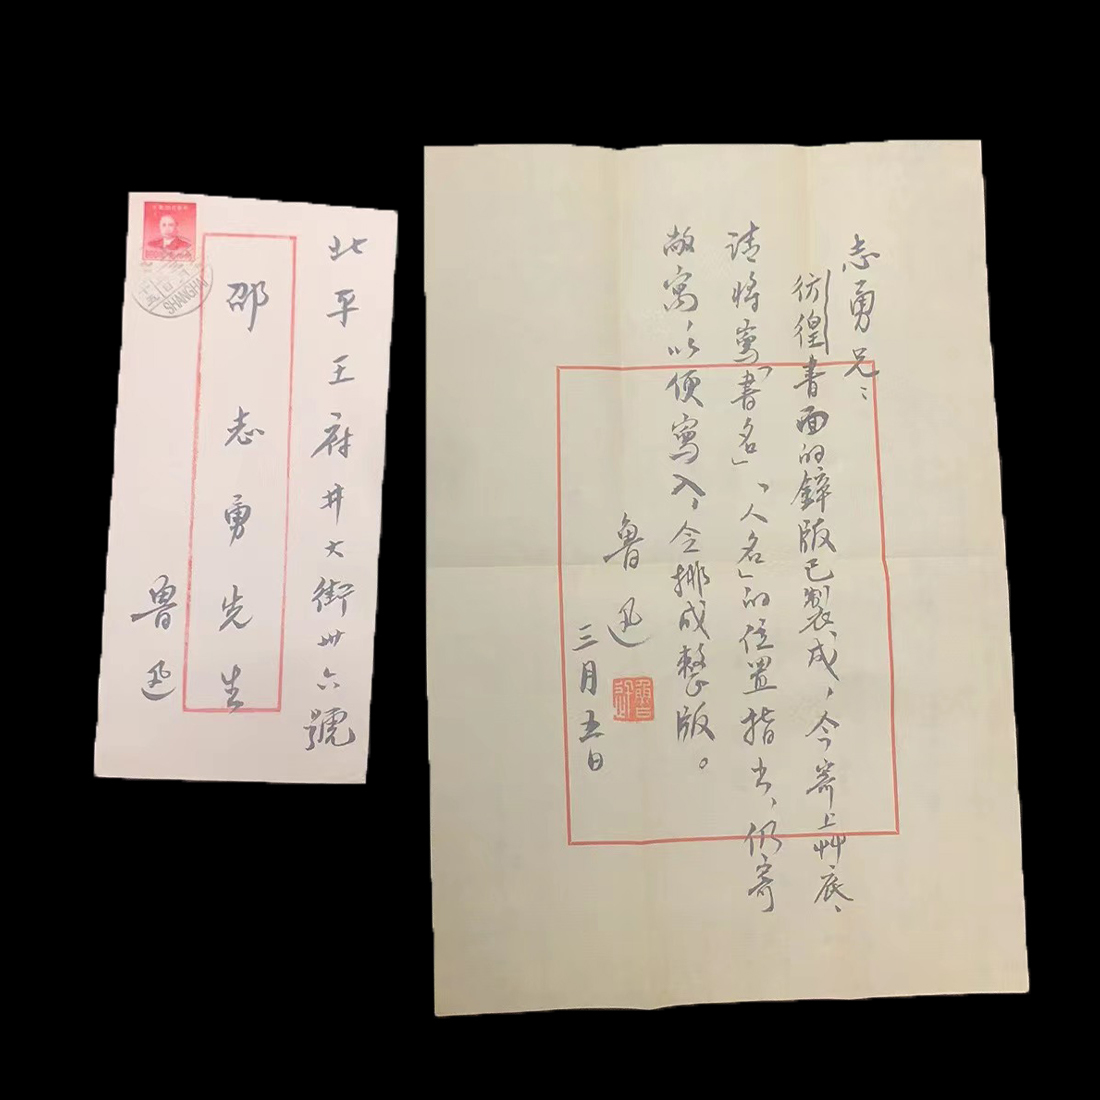 北平王府井大街卅六號
邵志勇先生
魯迅
SHANGHAI
志勇兄：
彷徨書面的鋅版已製成，今寄上艸底、
請將寫「書名」、「人名」的位置指出、仍寄
敝寓、以便寫入，令排成整版。
魯迅
三月五日